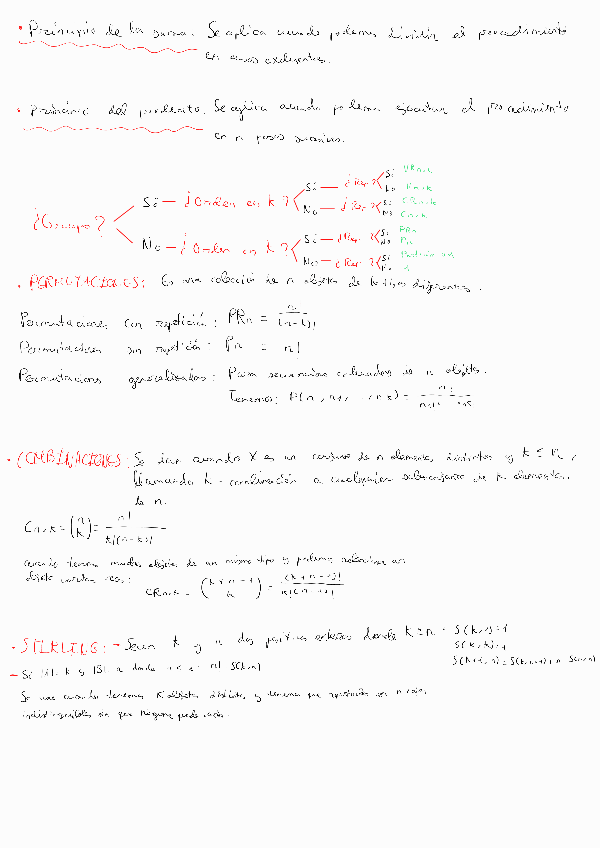 • Principio de la suma. Se aplica cuando podemos dividir el procedimiento
en casos excluyentes.
• Principio del producto. Se aplica cuando podemos ejecutar el procedimiento
en n pasos sucesivos.
¿Grupo?
Si — ¿Orden en k?
Si — ¿Rep?
Si VRn,k
No Vn,k
No — ¿Rep?
Si CRn,k
No Cn,k
No — ¿Orden en k?
Si — ¿Rep?
Si PRn
No Pn
No — ¿Rep?
Si
No
• PERMUTACIONES: Es una colección de n objetos de
Permutaciones con repetición: PRn = n / (n-k)!
Permutaciones sin repetición: Pn = n!
Permutaciones generalizadas: Para secuencias ordenadas de n objetos.
Tenemos: P(n, n1, ... nk) =
• COMBINACIONES: Se dan cuando X es un conjunto de n elementos distintos y k ≤ n,
llamando k-combinación a cualquier subconjunto de k elementos
de n.
Cn,k = (n k) = n! / k!(n-k)!
cuando tenemos muchos objetos de un mismo tipo y podemos seleccionar un
objeto varias veces:
CRn,k = (k+n-1 k) = (k+n-1)! / k!(n-1)!
• STIRLING: - Sean k y n dos positivos enteros donde k ≥ n - S(k,1)=1
S(k,k)=1
S(k+1,n)=S(k,n-1)+n S(k,n)
- Si |A|=k y |B|=n donde
Se usa cuando tenemos k objetos distintos y tenemos que repartirlos en n cajas
indistinguibles sin que ninguna quede vacía.